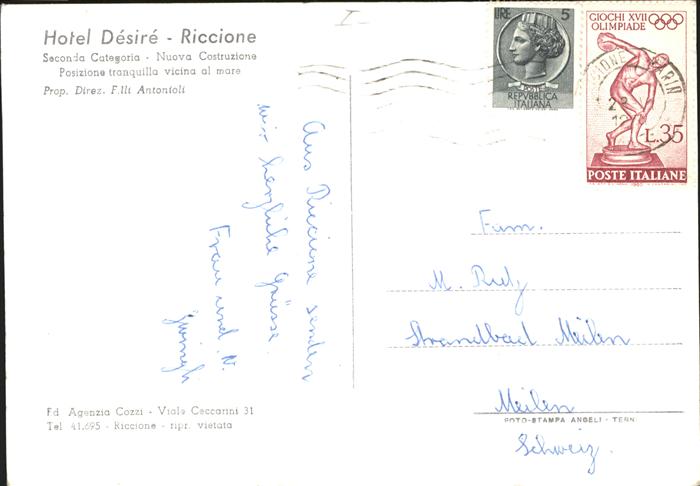 Hotel Désiré - Riccione
Seconda Categoria - Nuova Costruzione
Posizione tranquilla vicina al mare
Prop. Direz. F.lli Antonioli
LIRE 5
POSTE
REPVBBLICA
ITALIANA
GIOCHI XVII
OLIMPIADE
L.35
POSTE ITALIANE
Aus Riccione senden
wir herzliche Grüsse.
Frau und
Fam.
M.
Strandbad Meilen
Meilen
Schweiz.
Ed Agenzia Cozzi - Viale Ceccarini 31
Tel 41.695 - Riccione - ripr. vietata
FOTO-STAMPA ANGELI - TERNI